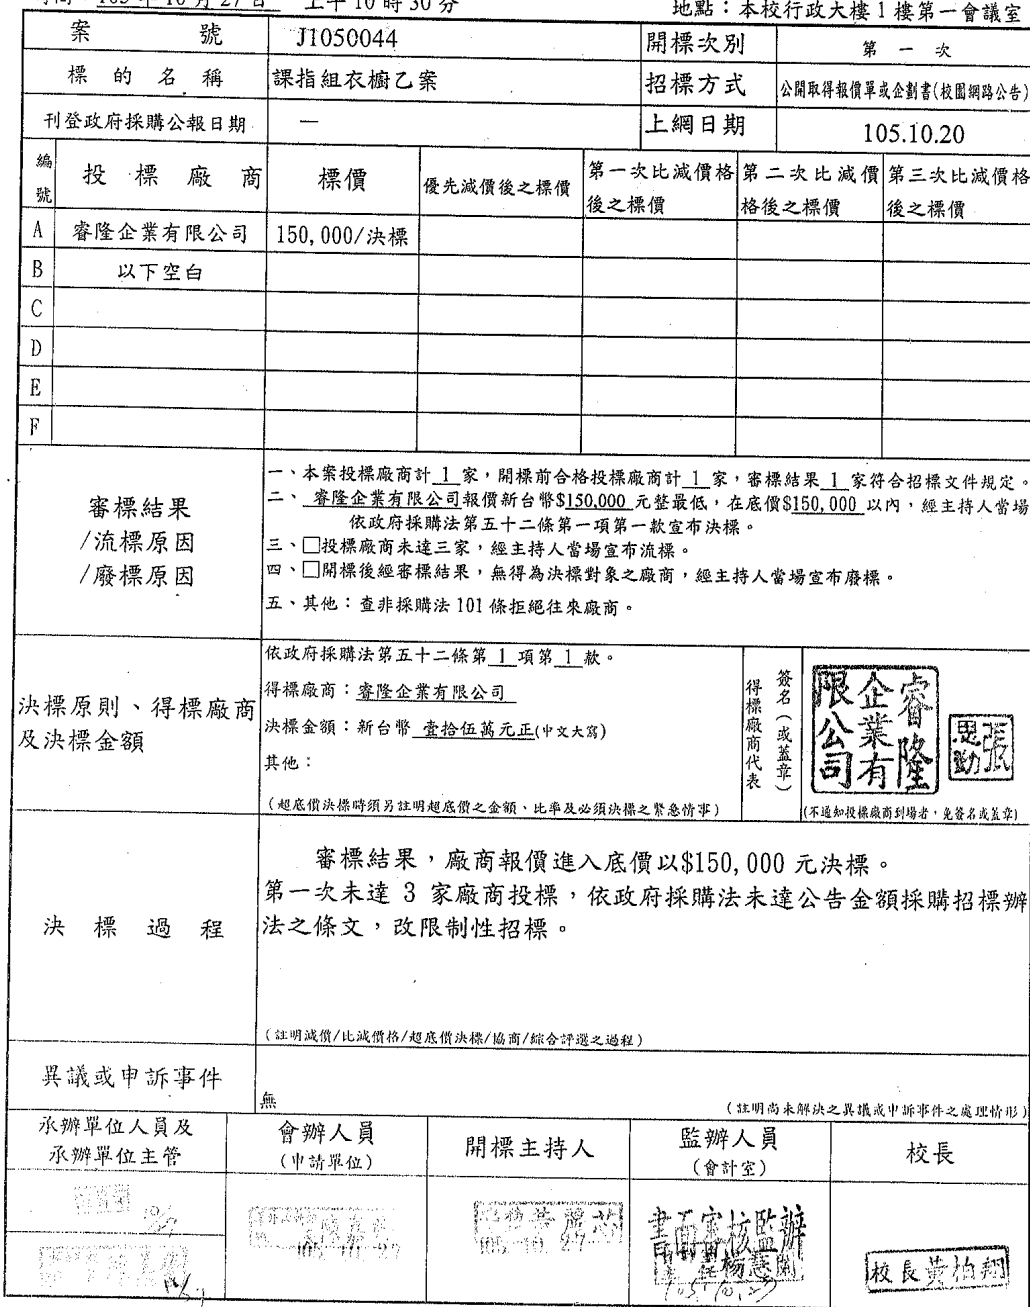 時間：105年10月27日 上午10時30分 地點：本校行政大樓1樓第一會議室
案號 J1050044 開標次別 第一次
標的名稱 課指組衣櫥乙案 招標方式 公開取得報價單或企劃書(校園網路公告)
刊登政府採購公報日期 — 上網日期 105.10.20
編號 投標廠商 標價 優先減價後之標價 第一次比減價格後之標價 第二次比減價格後之標價 第三次比減價格後之標價
A 睿隆企業有限公司 150,000/決標
B 以下空白
C
D
E
F
審標結果
/流標原因
/廢標原因
一、本案投標廠商計 1 家，開標前合格投標廠商計 1 家，審標結果 1 家符合招標文件規定。
二、 睿隆企業有限公司報價新台幣$150,000 元整最低，在底價$150,000 以內，經主持人當場
依政府採購法第五十二條第一項第一款宣布決標。
三、□投標廠商未達三家，經主持人當場宣布流標。
四、□開標後經審標結果，無得為決標對象之廠商，經主持人當場宣布廢標。
五、其他：查非採購法 101 條拒絕往來廠商。
決標原則、得標廠商
及決標金額
依政府採購法第五十二條第 1 項第 1 款。
得標廠商：睿隆企業有限公司
決標金額：新台幣 壹拾伍萬元正(中文大寫)
其他：
(超底價決標時須另註明超底價之金額、比率及必須決標之緊急情事)
得標廠商代表
簽名(或蓋章)
睿隆
企業有
限公司
張
思勤
(不通知投標廠商到場者，免簽名或蓋章)
決標過程
審標結果，廠商報價進入底價以$150,000 元決標。
第一次未達 3 家廠商投標，依政府採購法未達公告金額採購招標辦
法之條文，改限制性招標。
(註明減價/比減價格/超底價決標/協商/綜合評選之過程)
異議或申訴事件
無
(註明尚未解決之異議或申訴事件之處理情形)
承辦單位人員及
承辦單位主管
會辦人員
(申請單位)
開標主持人
監辦人員
(會計室)
校長
105.10.27
105.10.27
書面審核監辦
楊慧蘭
105.10.27
校長黃柏翔